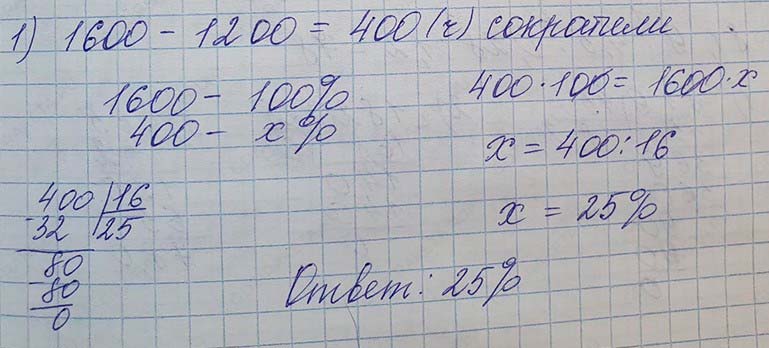 1) 1600 - 1200 = 400 (г) сократили
1600 - 100%
400 - x%
400·100 = 1600·x
x = 400:16
x = 25%
400 | 16
-32 | 25
80
-80
0
Ответ: 25%